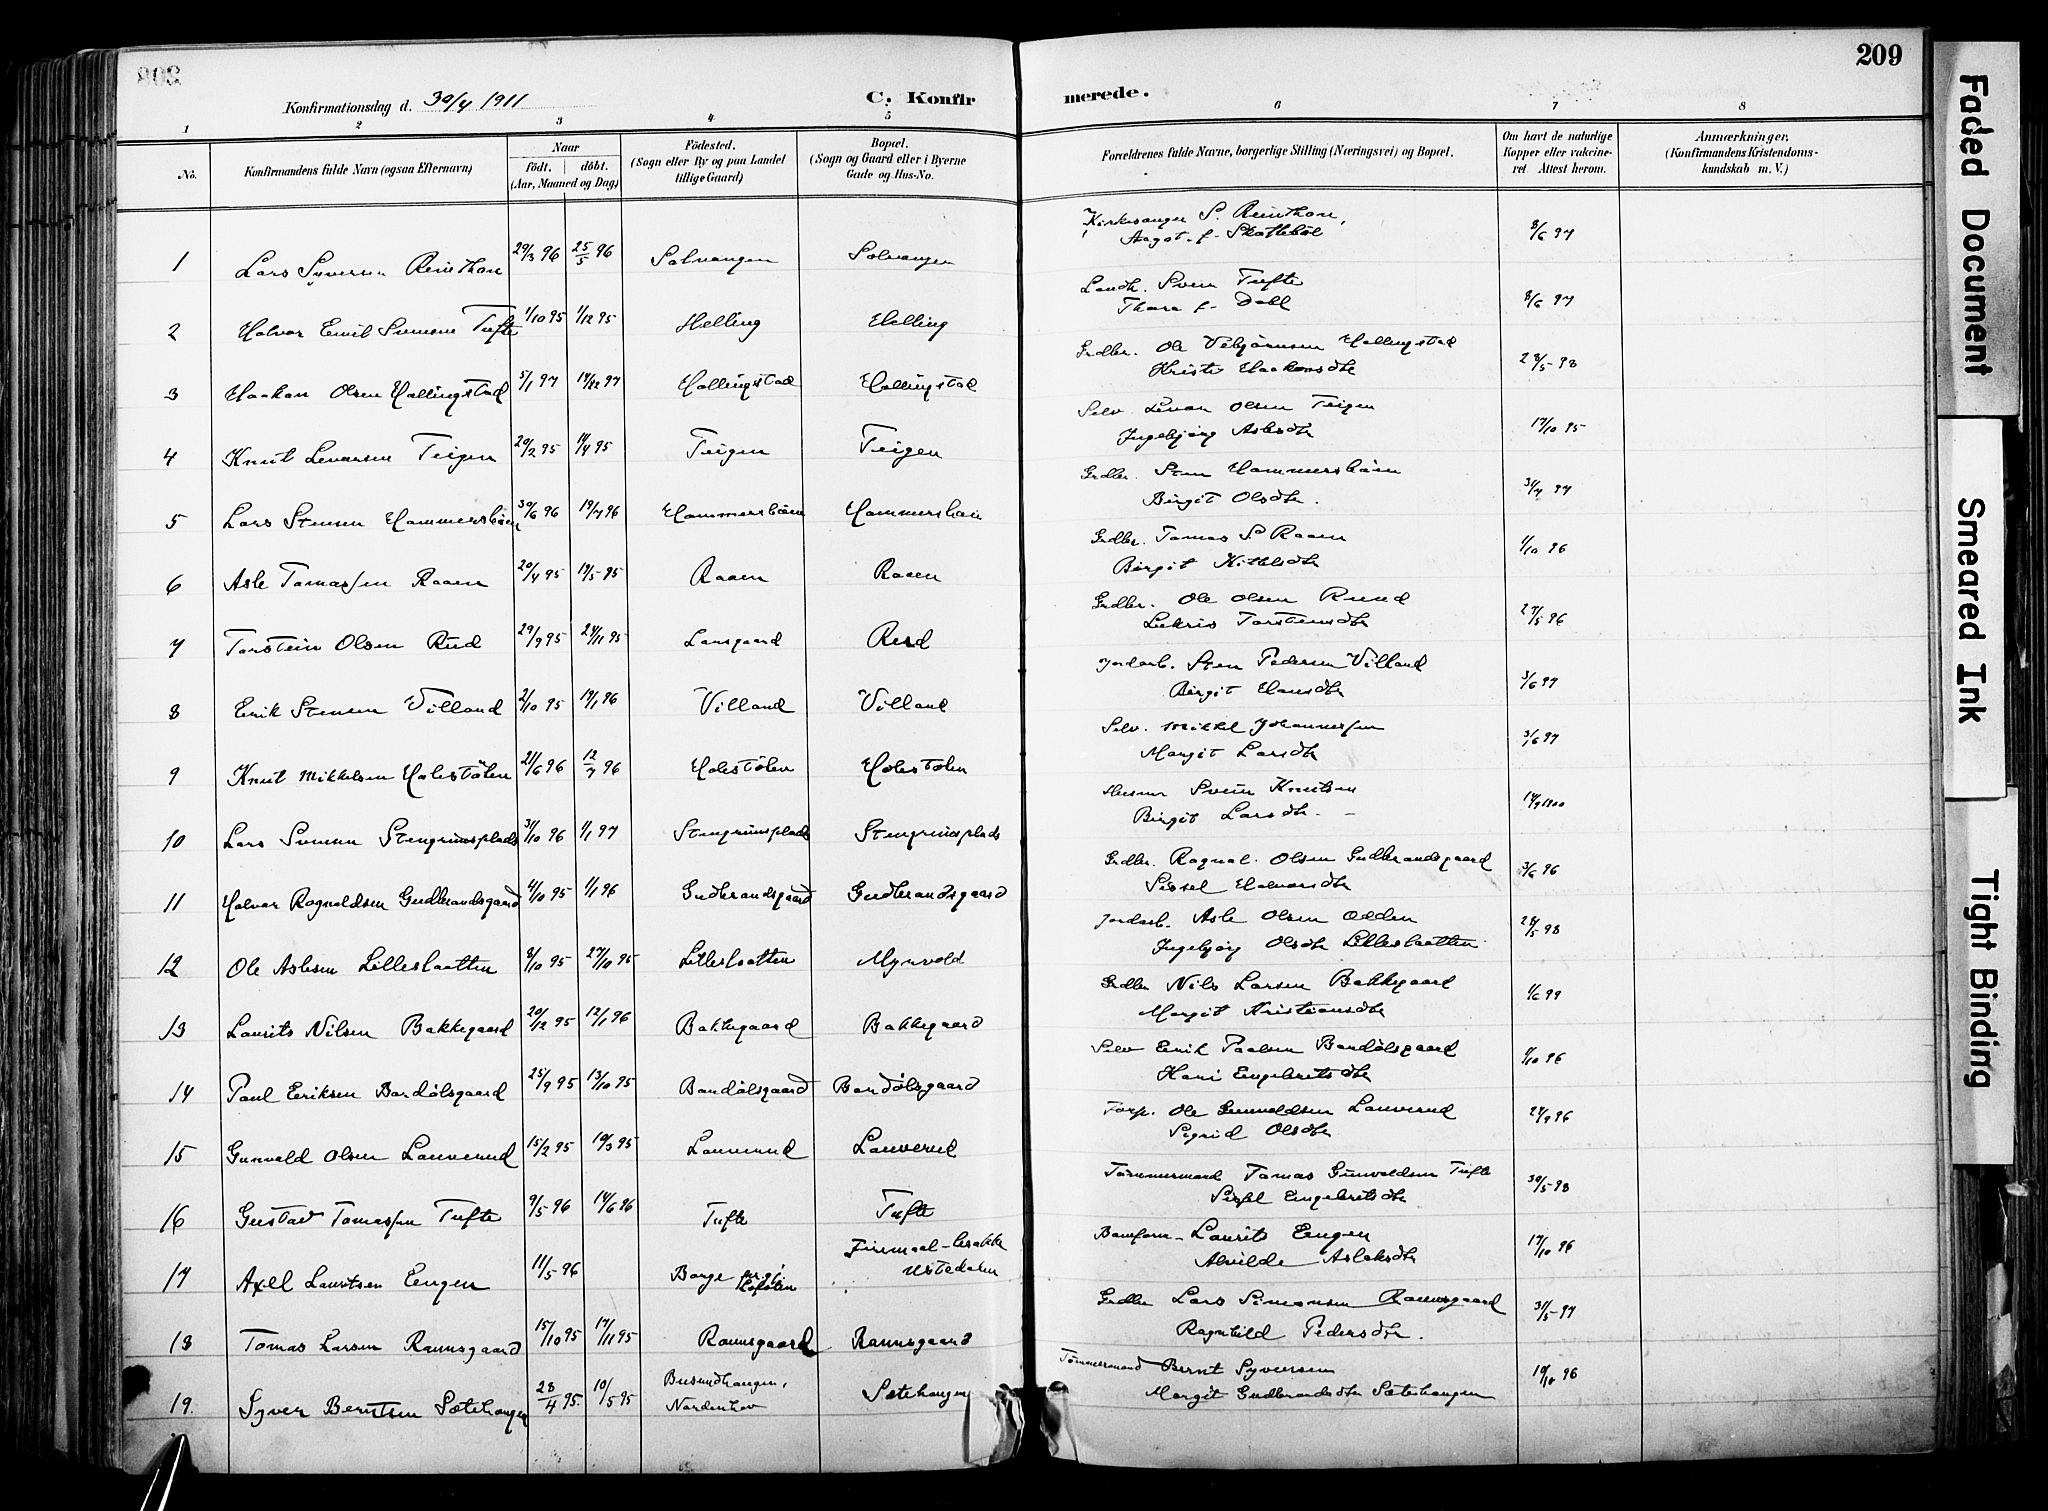 209
Konfirmationsdag d. 30/4 1911
C. Konfirmerede.
1 2 3 4 5 6 7 8
No.
Konfirmandens fulde Navn (ogsaa Efternavn)
Naar født. døbt. (Aar, Maaned og Dag)
Fødested. (Sogn eller By og paa Landet tillige Gaard)
Bopæl. (Sogn og Gaard eller i Byerne Gade og Hus-No.
Forældrenes fulde Navne, borgerlige Stilling (Næringsvei) og Bopæl.
Om havt de naturlige Kopper eller vakcineret Attest herom.
Anmærkninger. (Konfirmandens Kristendomskundskab m. V.)
1 Lars Syversen Reinthon 29/3 96 25/5 96 Solvangen Solvangen Kirkesanger S. Reinthon, Aagot f. Skottebøl 8/6 97
2 Halvor Emil Svensen Tufte 1/10 95 1/12 95 Helling Helling Landh. Svein Tufte Thora f. Dahl 8/6 97
3 Haakon Olsen Hallingstad 5/1 97 Hallingstad Hallingstad Grdbr. Ole Vebjørnsen Hallingstad Kristi Haakonsdtr 28/5-98
4 Knut Levorsen Teigen 20/2 95 14/4 95 Teigen Teigen Selv. Levor Olsen Teigen Ingebjørg Aslesdtr 17/10 95
5 Lars Stensen Hammersbøen 30/6 96 19/7 96 Hammersbøen Hammersbøen Grdbr. Sten Hammersbøen Birgit Olsdtr. 31/7 97
6 Asle Tomassen Raaen 20/4 95 19/5 95 Raaen Raaen Grdbr. Tomas S Raaen Birgit Kittelsdtr 1/10 96
7 Torstein Olsen Rud 29/9 95 24/11 95 Larsgaard Rud Grdbr. Ole Olsen Ruud Torsteinsdtr 27/5 96
8 Erik Stensen Villand 2/10 95 19/1 96 Villand Villand Jordarb. Sten Pedersen Villand Birgit Hansdtr 3/6 97
9 Knut Mikkelsen Holestølen 21/6 96 12/7 96 Holestølen Holestølen Selv. Mikkel Johannessen Margit Larsdtr 3/6 97
10 Lars Svensen Stengrimsplads 31/10 96 1/1 97 Stengrimsplads Stengrimsplads Husm Svein Knutsen Birgit Larsdtr. 14/9 1900
11 Halvor Ragnvaldsen Gudbrandsgaard 4/10 95 1/1 96 Gudbrandsgaard Gudbrandsgaard Grdbr. Ragnval. Olsen Gudbrandsgaard Sissel Halvorsdtr 3/6 96
12 Ole Aslesen Lilleslaatten 8/10 95 27/10 95 Lilleslaatten Myrvold Jordarb. Asle Olsen Odden Ingebjørg Olsdtr Lilleslaatten 24/5-98
13 Laurits Nilsen Bakkegaard 20/12 95 12/1 96 Bakkegaard Bakkegaard Grdbr Nils Larsen Bakkegaard Margit Kristiansdtr 1/6 99
14 Paul Eriksen Bardølsgaard 25/9 95 13/10 95 Bardølsgaard Bardølsgaard Selv Erik Paalsen Bardølsgaard Hani Engebretsdtr 1/10 96
15 Gunvald Olsen Lauverud 15/2 95 10/3 95 Lauverud Lauverud Torp. Ole Gunvaldsen Lauverud Sigrid Olsdtr 24/9 96
16 Gustav Tomassen Tufte 9/5 96 14/6 96 Tufte Tufte Tømmermand Tomas Gunvaldsen Tufte Sissel Engebritsdtr 30/5-98
17 Axel Lauritsen Eengen 11/5 96 Borge prgj. Lofoten Firemaal-brakke Ustedalen Laurits Eengen Alvilde Aslaksdtr 17/10 96
18 Tomas Larsen Ramsgaard 15/10 95 17/11 95 Ramsgaard Ramsgaard Grdbr Lars Simonsen Ramsgaard Ragnhild Pedersdtr. 31/5-97
19. Syver Berntsen Sætehaugen 28/4 95. 10/5 95 Busundhaugen, Norderhov Sætehaugen Tømmermand Bernt Syversen Margit Gudbrandsdtr Sætehaugen 10/10 96
Faded Document
Smeared Ink
Tight Binding